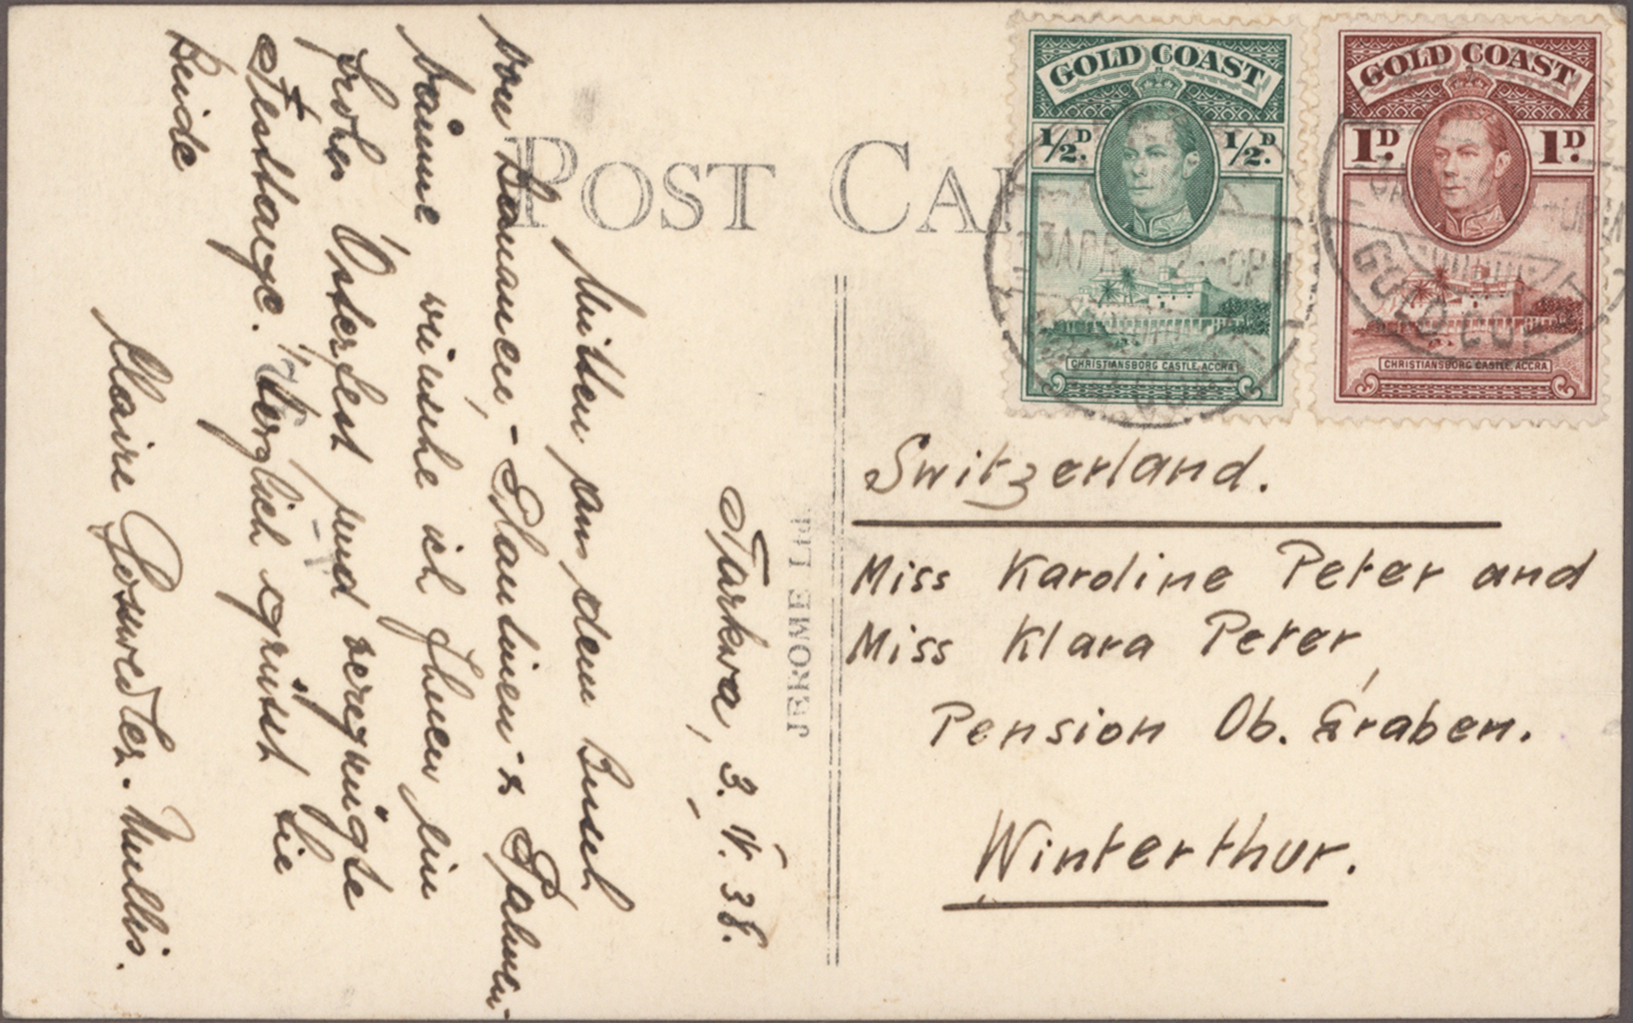 POST CA
GOLD COAST
1/2D. 1/2D.
CHRISTIANSBORG CASTLE, ACCRA
GOLD COAST
1D. 1D.
CHRISTIANSBORG CASTLE, ACCRA
3 APR
GOLD COA
JEROME Ltd.
Tarkwa, 3. IV. 38.
Mitten aus dem Busch
von Bananen,- Plantinen- & Palmen-
bäume wünsche ich Ihnen ein
frohes Osterfest und vergnügte
Festtage. Herzlich grüsst Sie
Beide
Claire
Switzerland.
Miss Karoline Peter and
Miss Klara Peter,
Pension Ob. Graben.
Winterthur.